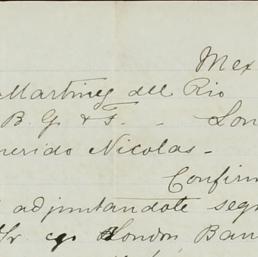 Mex
Martinez del Rio
B. G. & F. - Lon
uerido Nicolas -
Confirm
adjuntandote segu
Sr. c/o London Ban